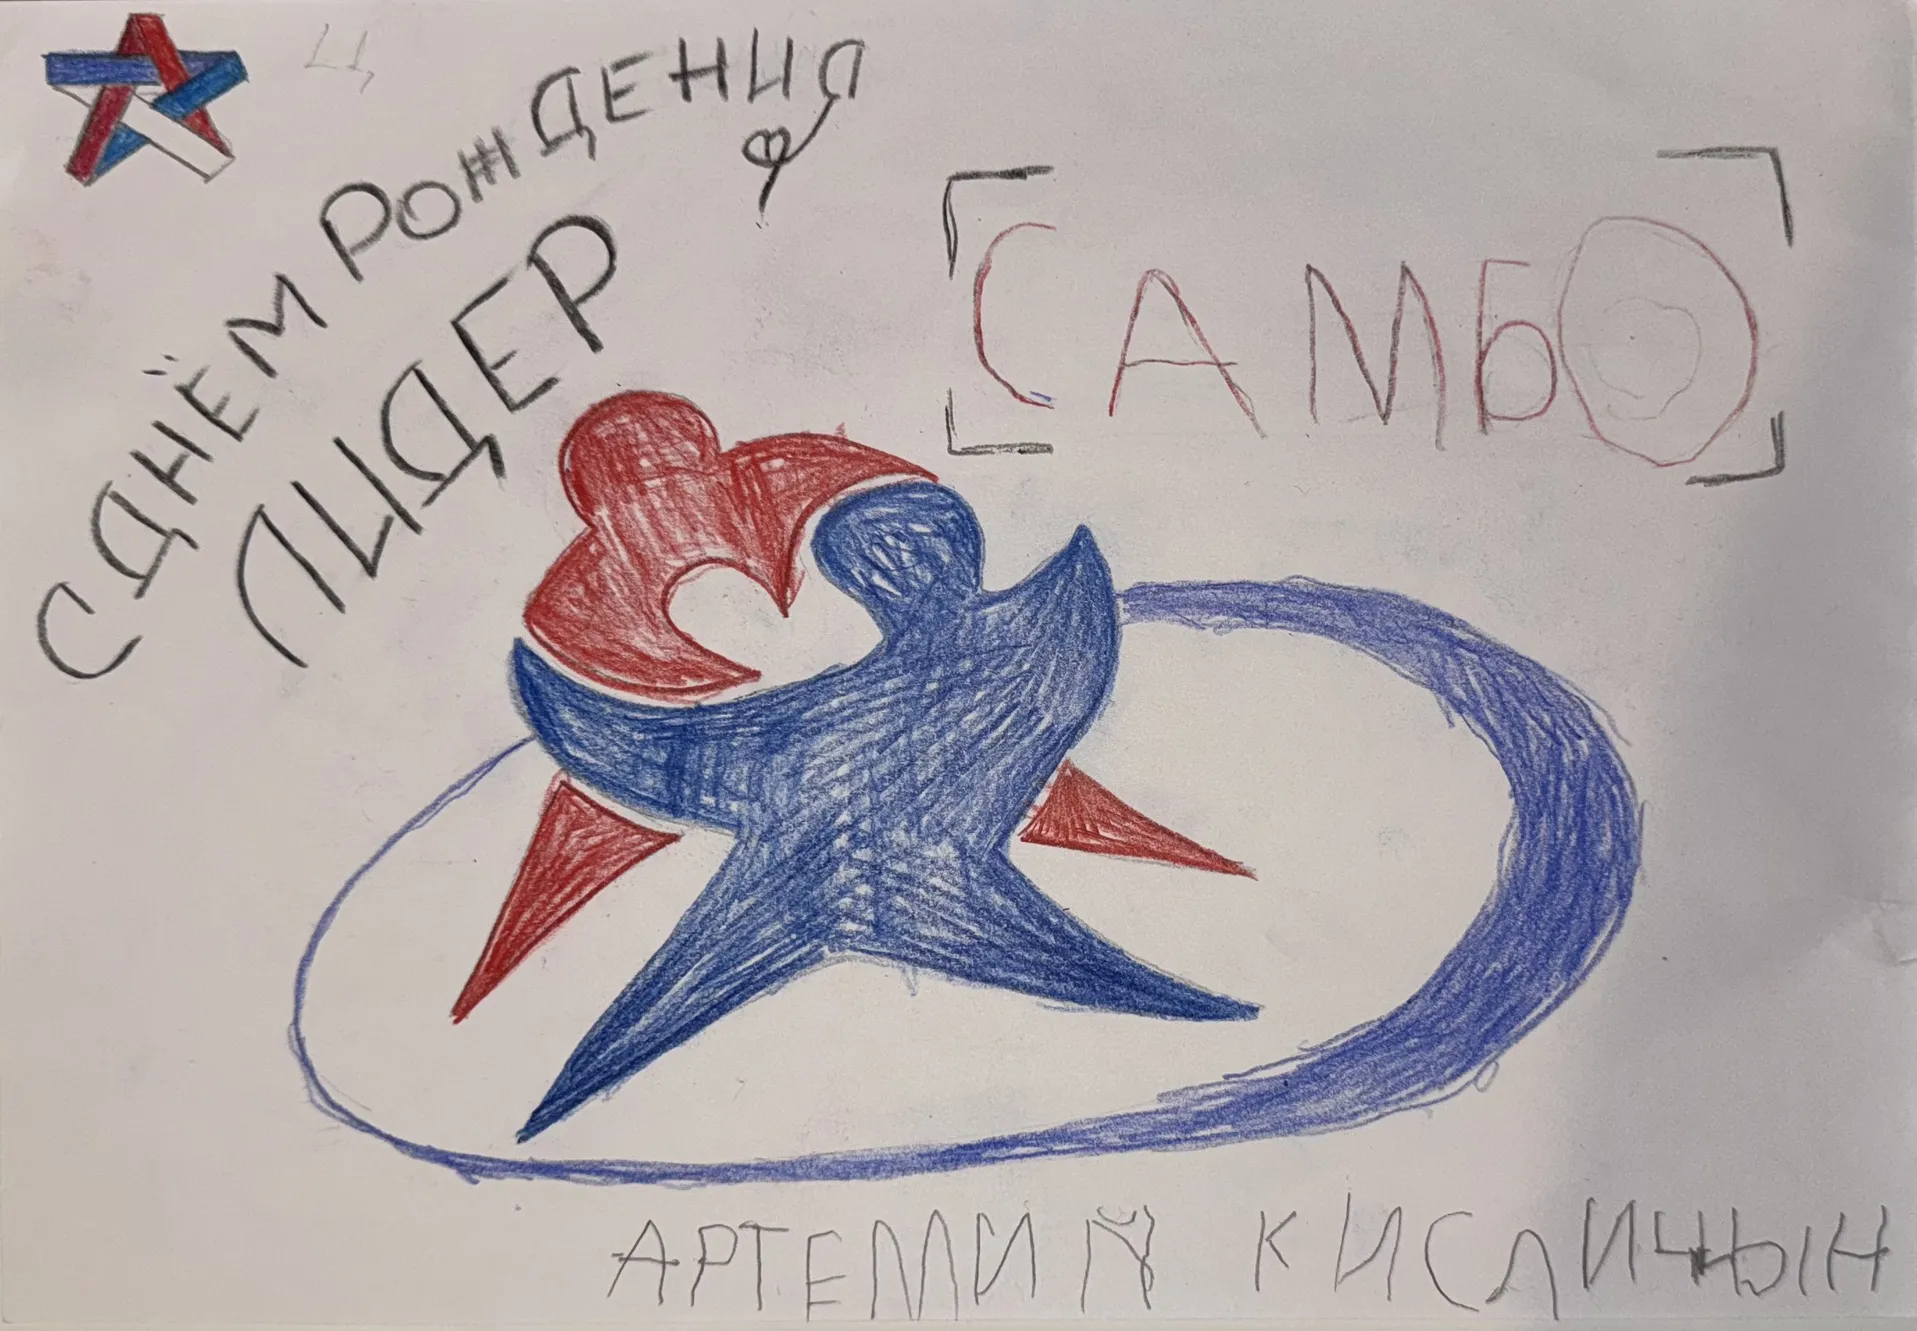 Ц
С ДНЁМ РОЖДЕНИЯ
ЛИДЕР
САМБО
АРТЕМИЙ КИСЛИЧЫН